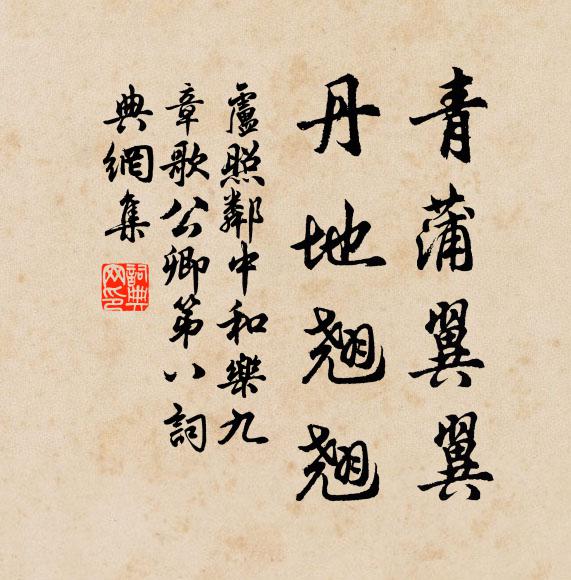 青蒲翼翼
丹地翹翹
盧照鄰中和樂九
章歌公卿第八詞
典網集
詞典网印